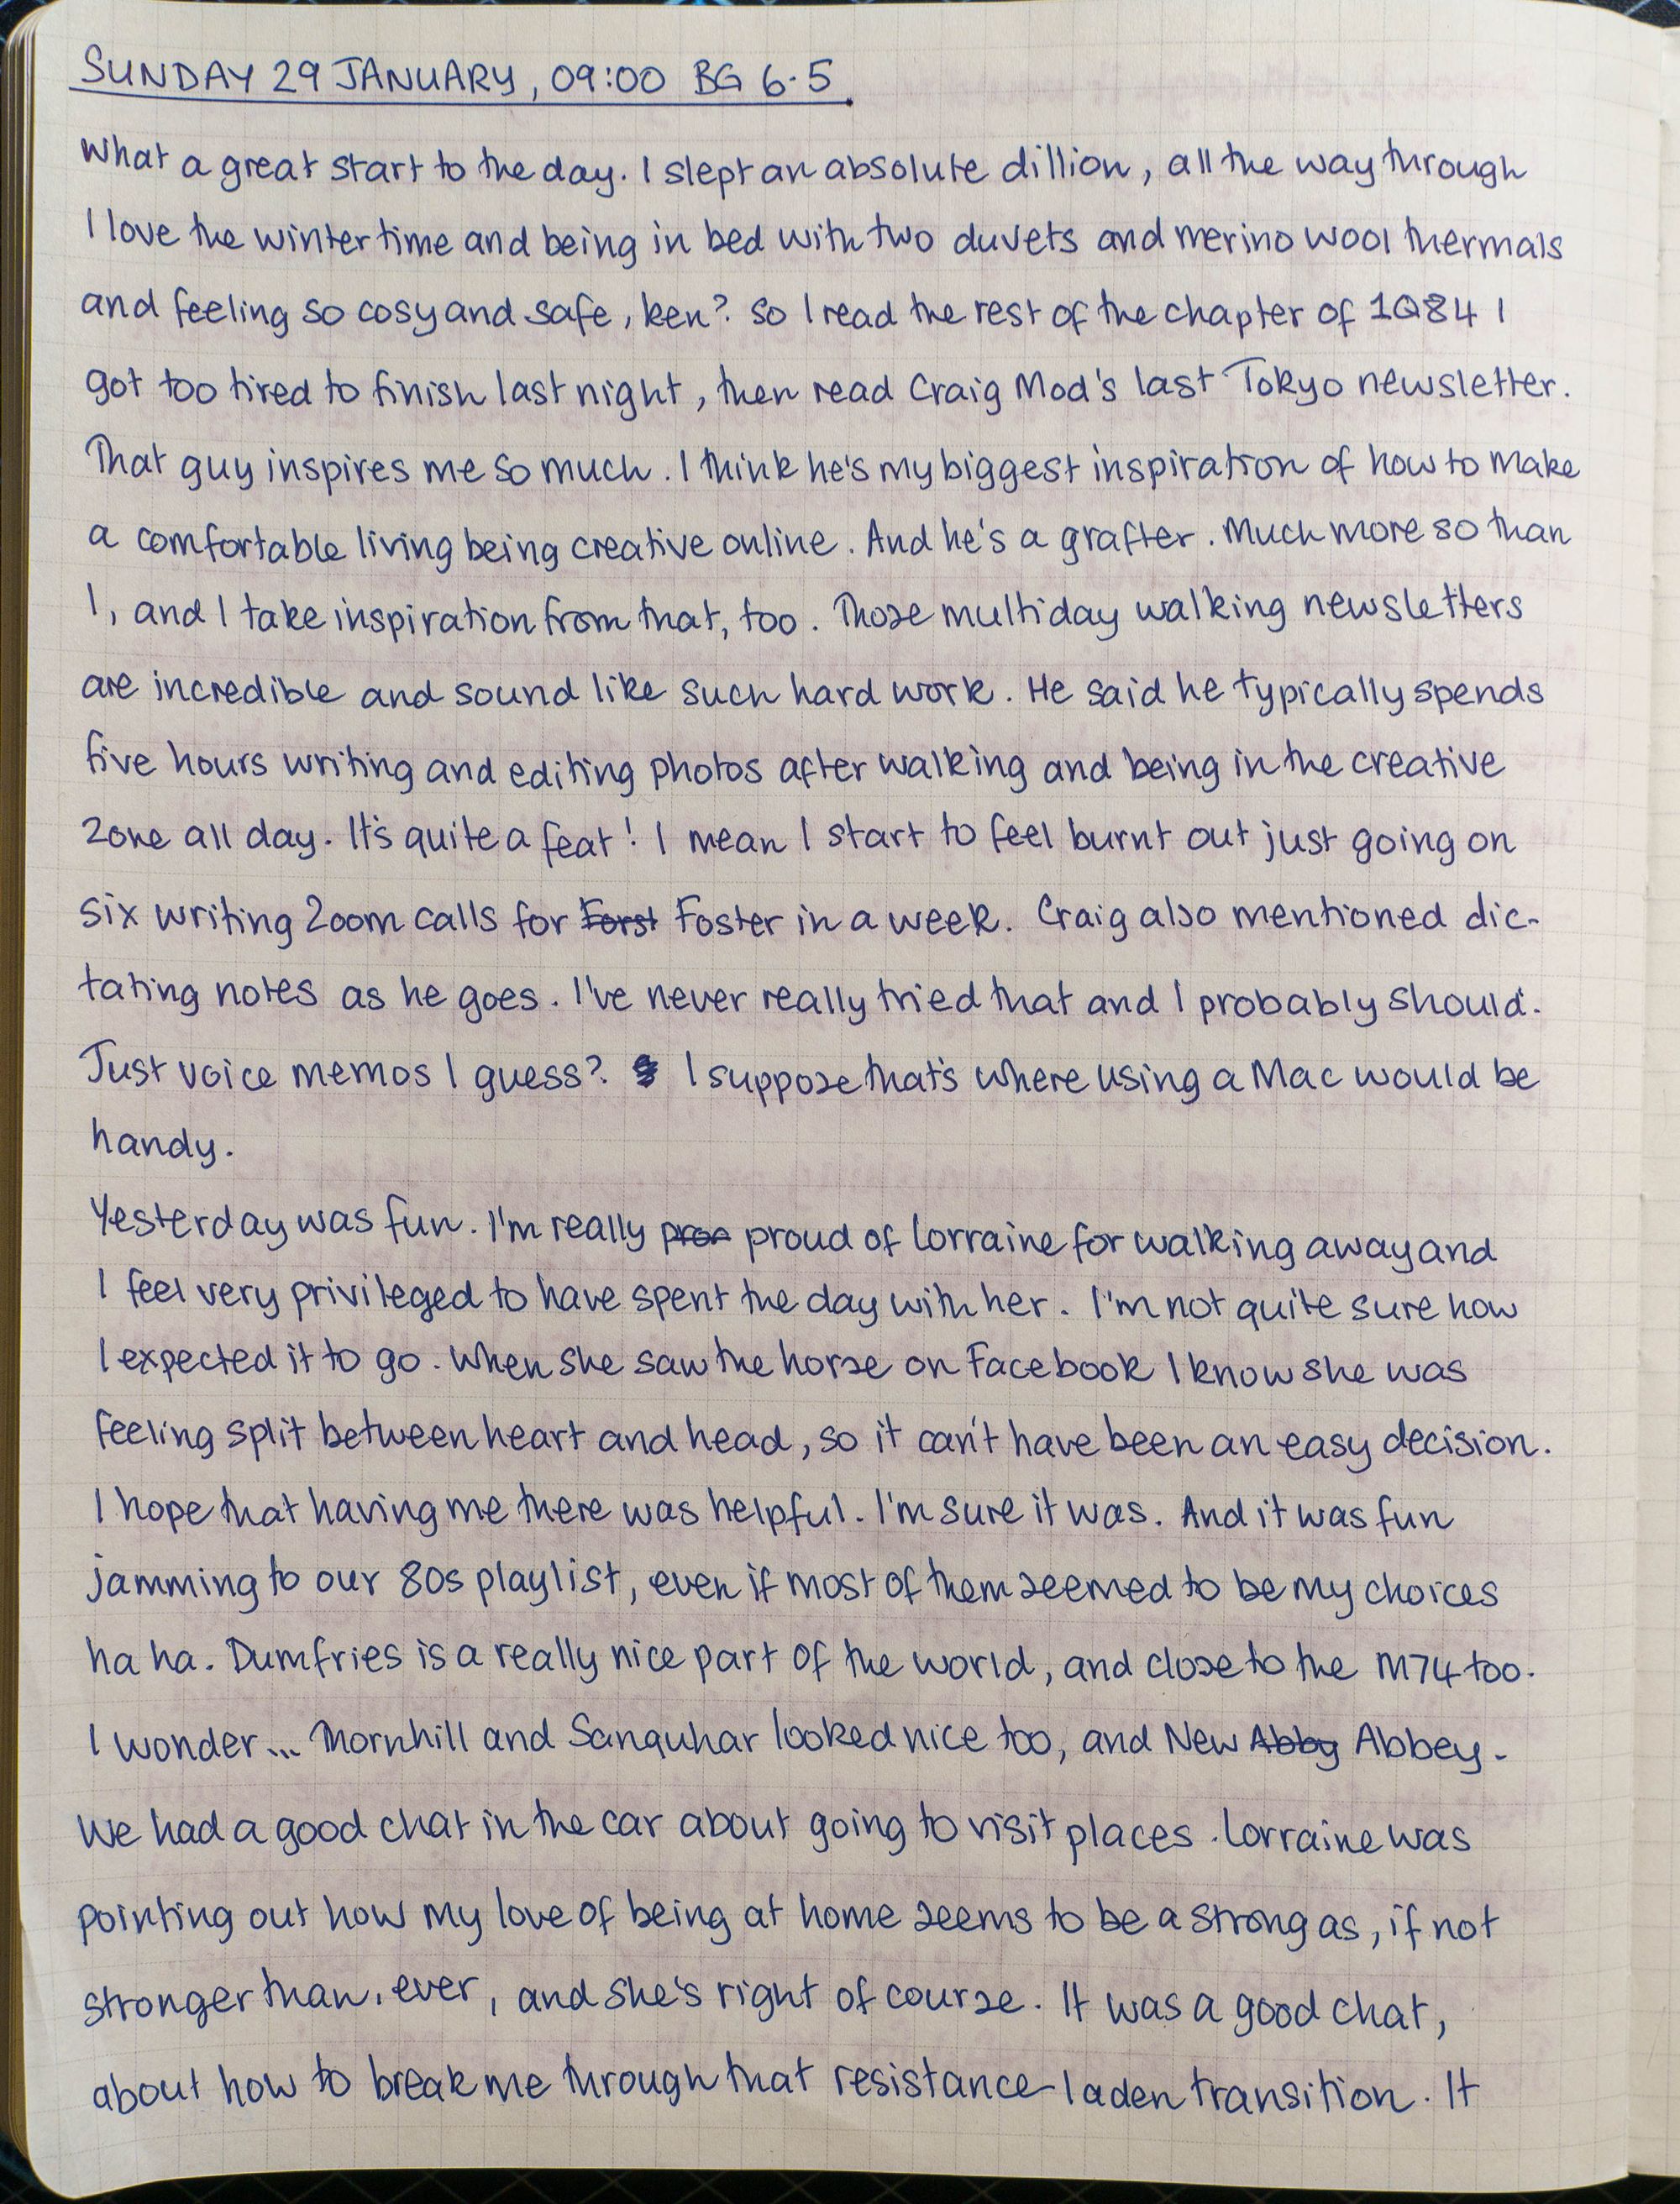 SUNDAY 29 JANUARY, 09:00 BG 6.5.
What a great start to the day. I slept an absolute dillion, all the way through
I love the wintertime and being in bed with two duvets and merino wool thermals
and feeling so cosy and safe, ken? So I read the rest of the chapter of 1Q84 I
got too tired to finish last night, then read Craig Mod's last Tokyo newsletter.
That guy inspires me so much. I think he's my biggest inspiration of how to make
a comfortable living being creative online. And he's a grafter. Much more so than
I, and I take inspiration from that, too. Those multiday walking newsletters
are incredible and sound like such hard work. He said he typically spends
five hours writing and editing photos after walking and being in the creative
zone all day. It's quite a feat! I mean I start to feel burnt out just going on
six writing Zoom calls for Forst Foster in a week. Craig also mentioned dic-
tating notes as he goes. I've never really tried that and I probably should.
Just voice memos I guess? I suppose that's where using a Mac would be
handy.
Yesterday was fun. I'm really pron proud of Lorraine for walking away and
I feel very privileged to have spent the day with her. I'm not quite sure how
I expected it to go. When she saw the horse on Facebook I know she was
feeling split between heart and head, so it can't have been an easy decision.
I hope that having me there was helpful. I'm sure it was. And it was fun
jamming to our 80s playlist, even if most of them seemed to be my choices
ha ha. Dumfries is a really nice part of the world, and close to the M74 too.
I wonder... Thornhill and Sanquhar looked nice too, and New Abby Abbey.
We had a good chat in the car about going to visit places. Lorraine was
pointing out how my love of being at home seems to be a strong as, if not
stronger than, ever, and she's right of course. It was a good chat,
about how to break me through that resistance-laden transition. It